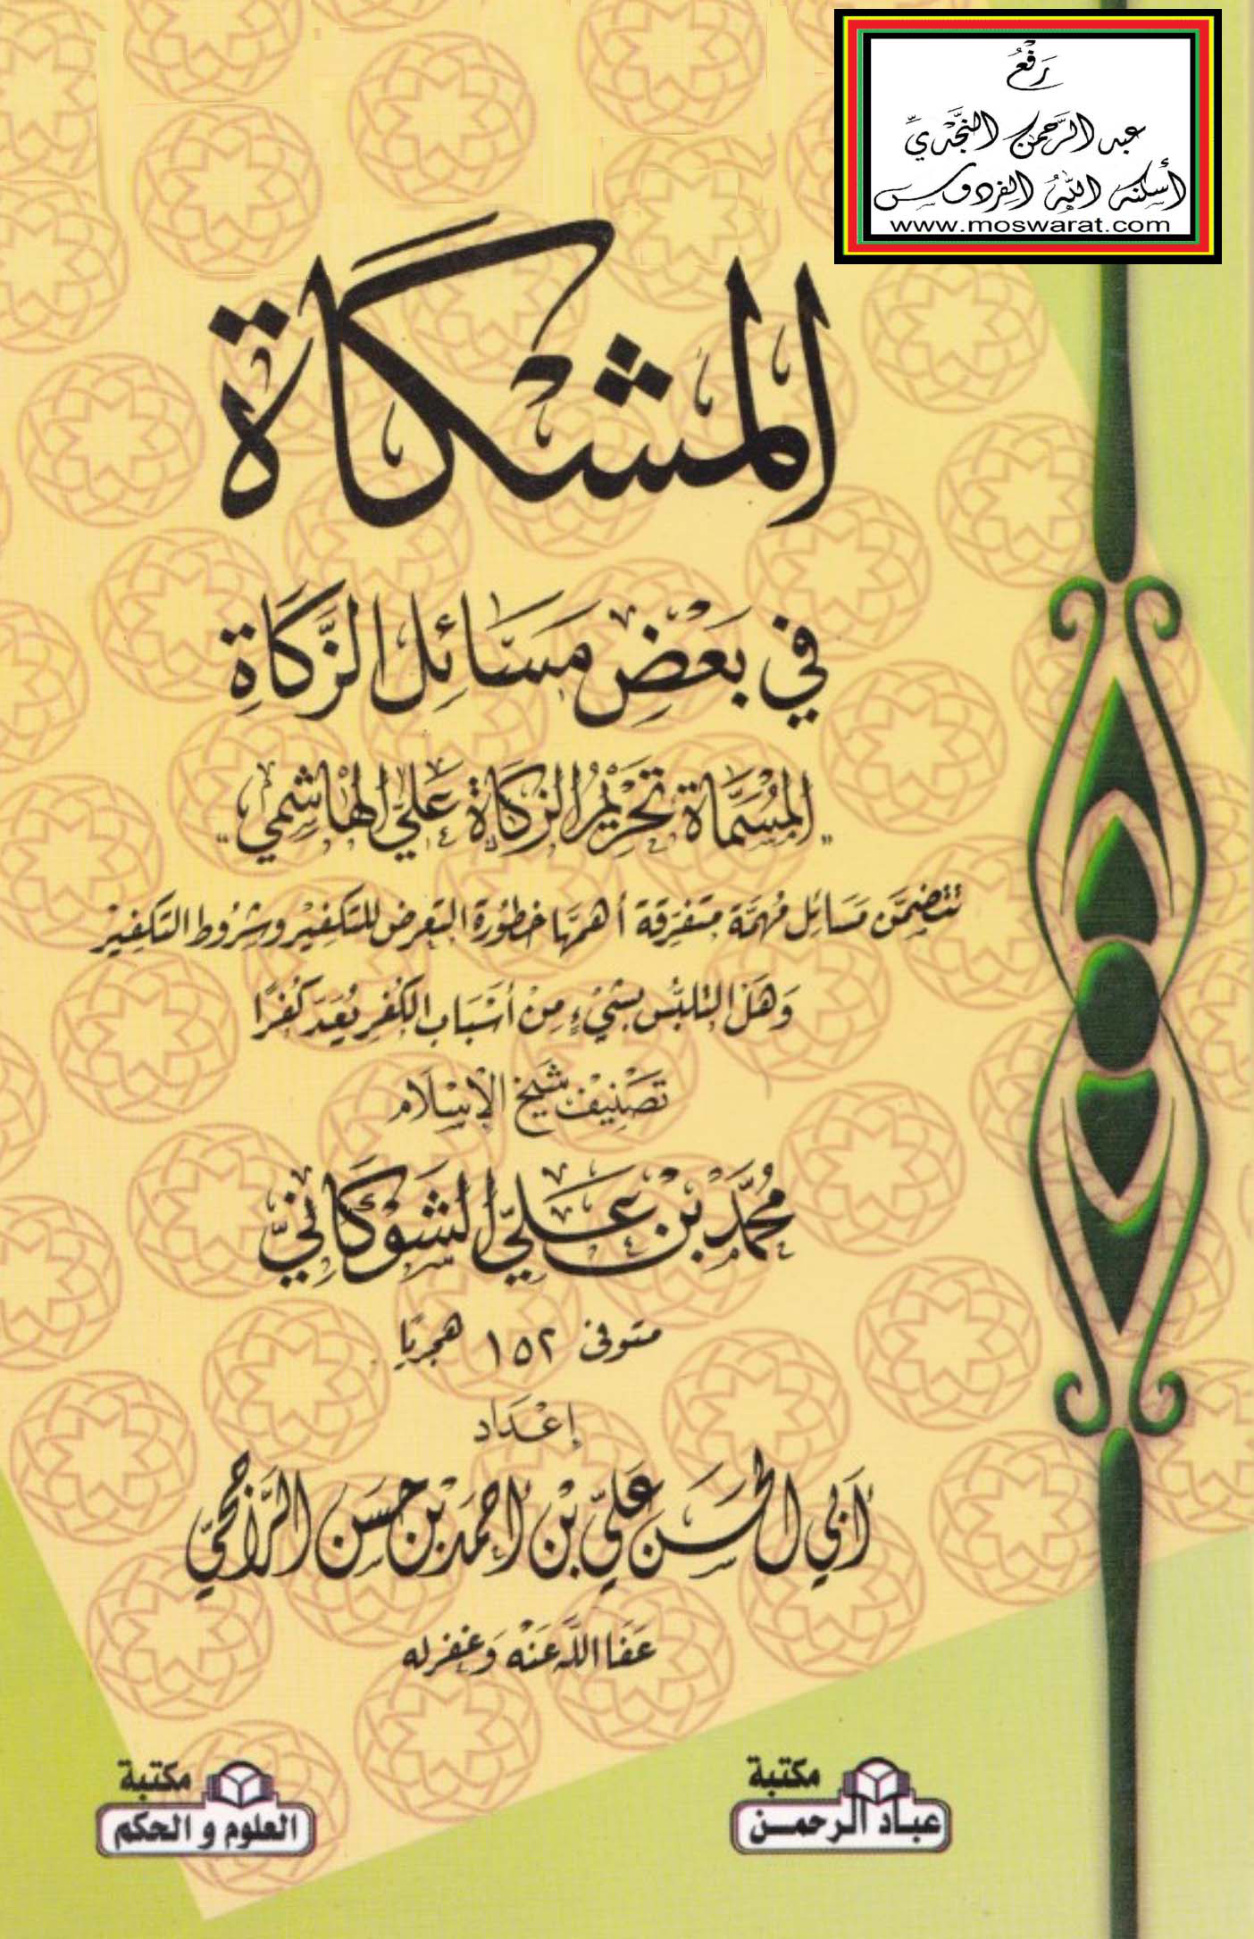 رَفْعُ
عبد الرَّحمن النَّجْديِّ
أسكنه اللهُ الفردوس
www.moswarat.com
المشكاة
في بَعْضِ مَسَائِلِ الزَّكَاةِ
"المُسَمَّاة تحْرِيمُ الزكَاة عَلى الهَاشِمِي"
تتضمَّن مَسَائل مُهمَّة متفرِّقة أهمّها خطُورة التعرض للتكفيْر وشرُوط التكفِيْر
وَهَل التلبُّس بشيْءٍ مِنْ أسْبَابِ الكُفرِ يُعَدّ كُفرًا
تَصْنِيْف شَيخ الإِسْلَام
مُحمَّد بْن عَليّ الشَوْكَانيّ
متوفى ١٥٢ هجريًا
إعْدَاد
أَبي الحَسَن عَليّ بْن أحمَد بْن حسَن الرَّازحيّ
عَفَا اللَّه عَنْه وَغفر له
مكتبة
عباد الرحمن
مكتبة
العلوم و الحكم